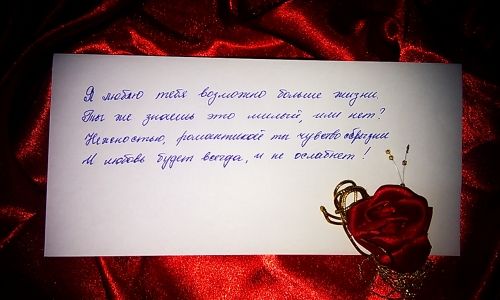 Я люблю тебя возможно больше жизни.
Ты же знаешь это милый, или нет?
Нежностью, романтикой ты чувства брызни
И любовь будет всегда, и не ослабнет!